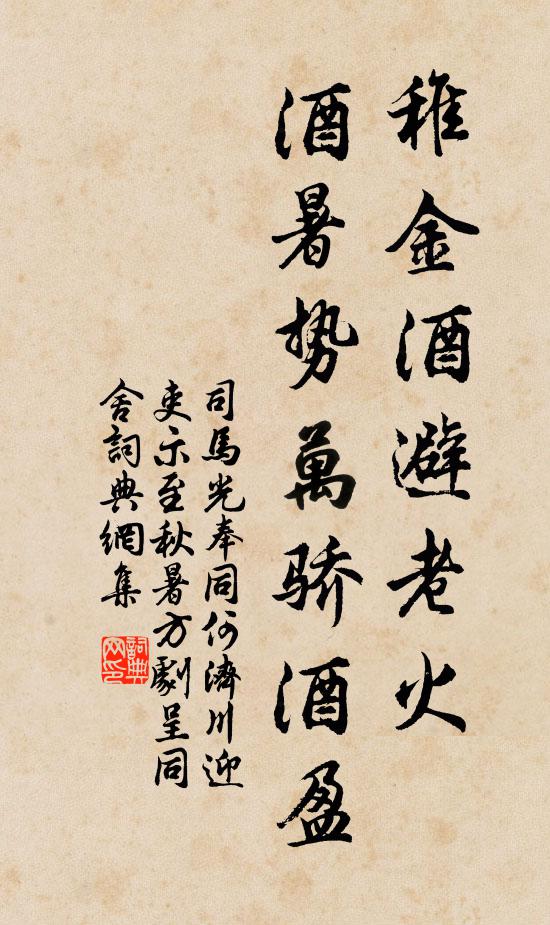 稚金酒避老火
酒暑势萬骄酒盈
司馬光奉同何濟川迎
吏示至秋暑方劇呈同
舍詞典網集
詞典
网印